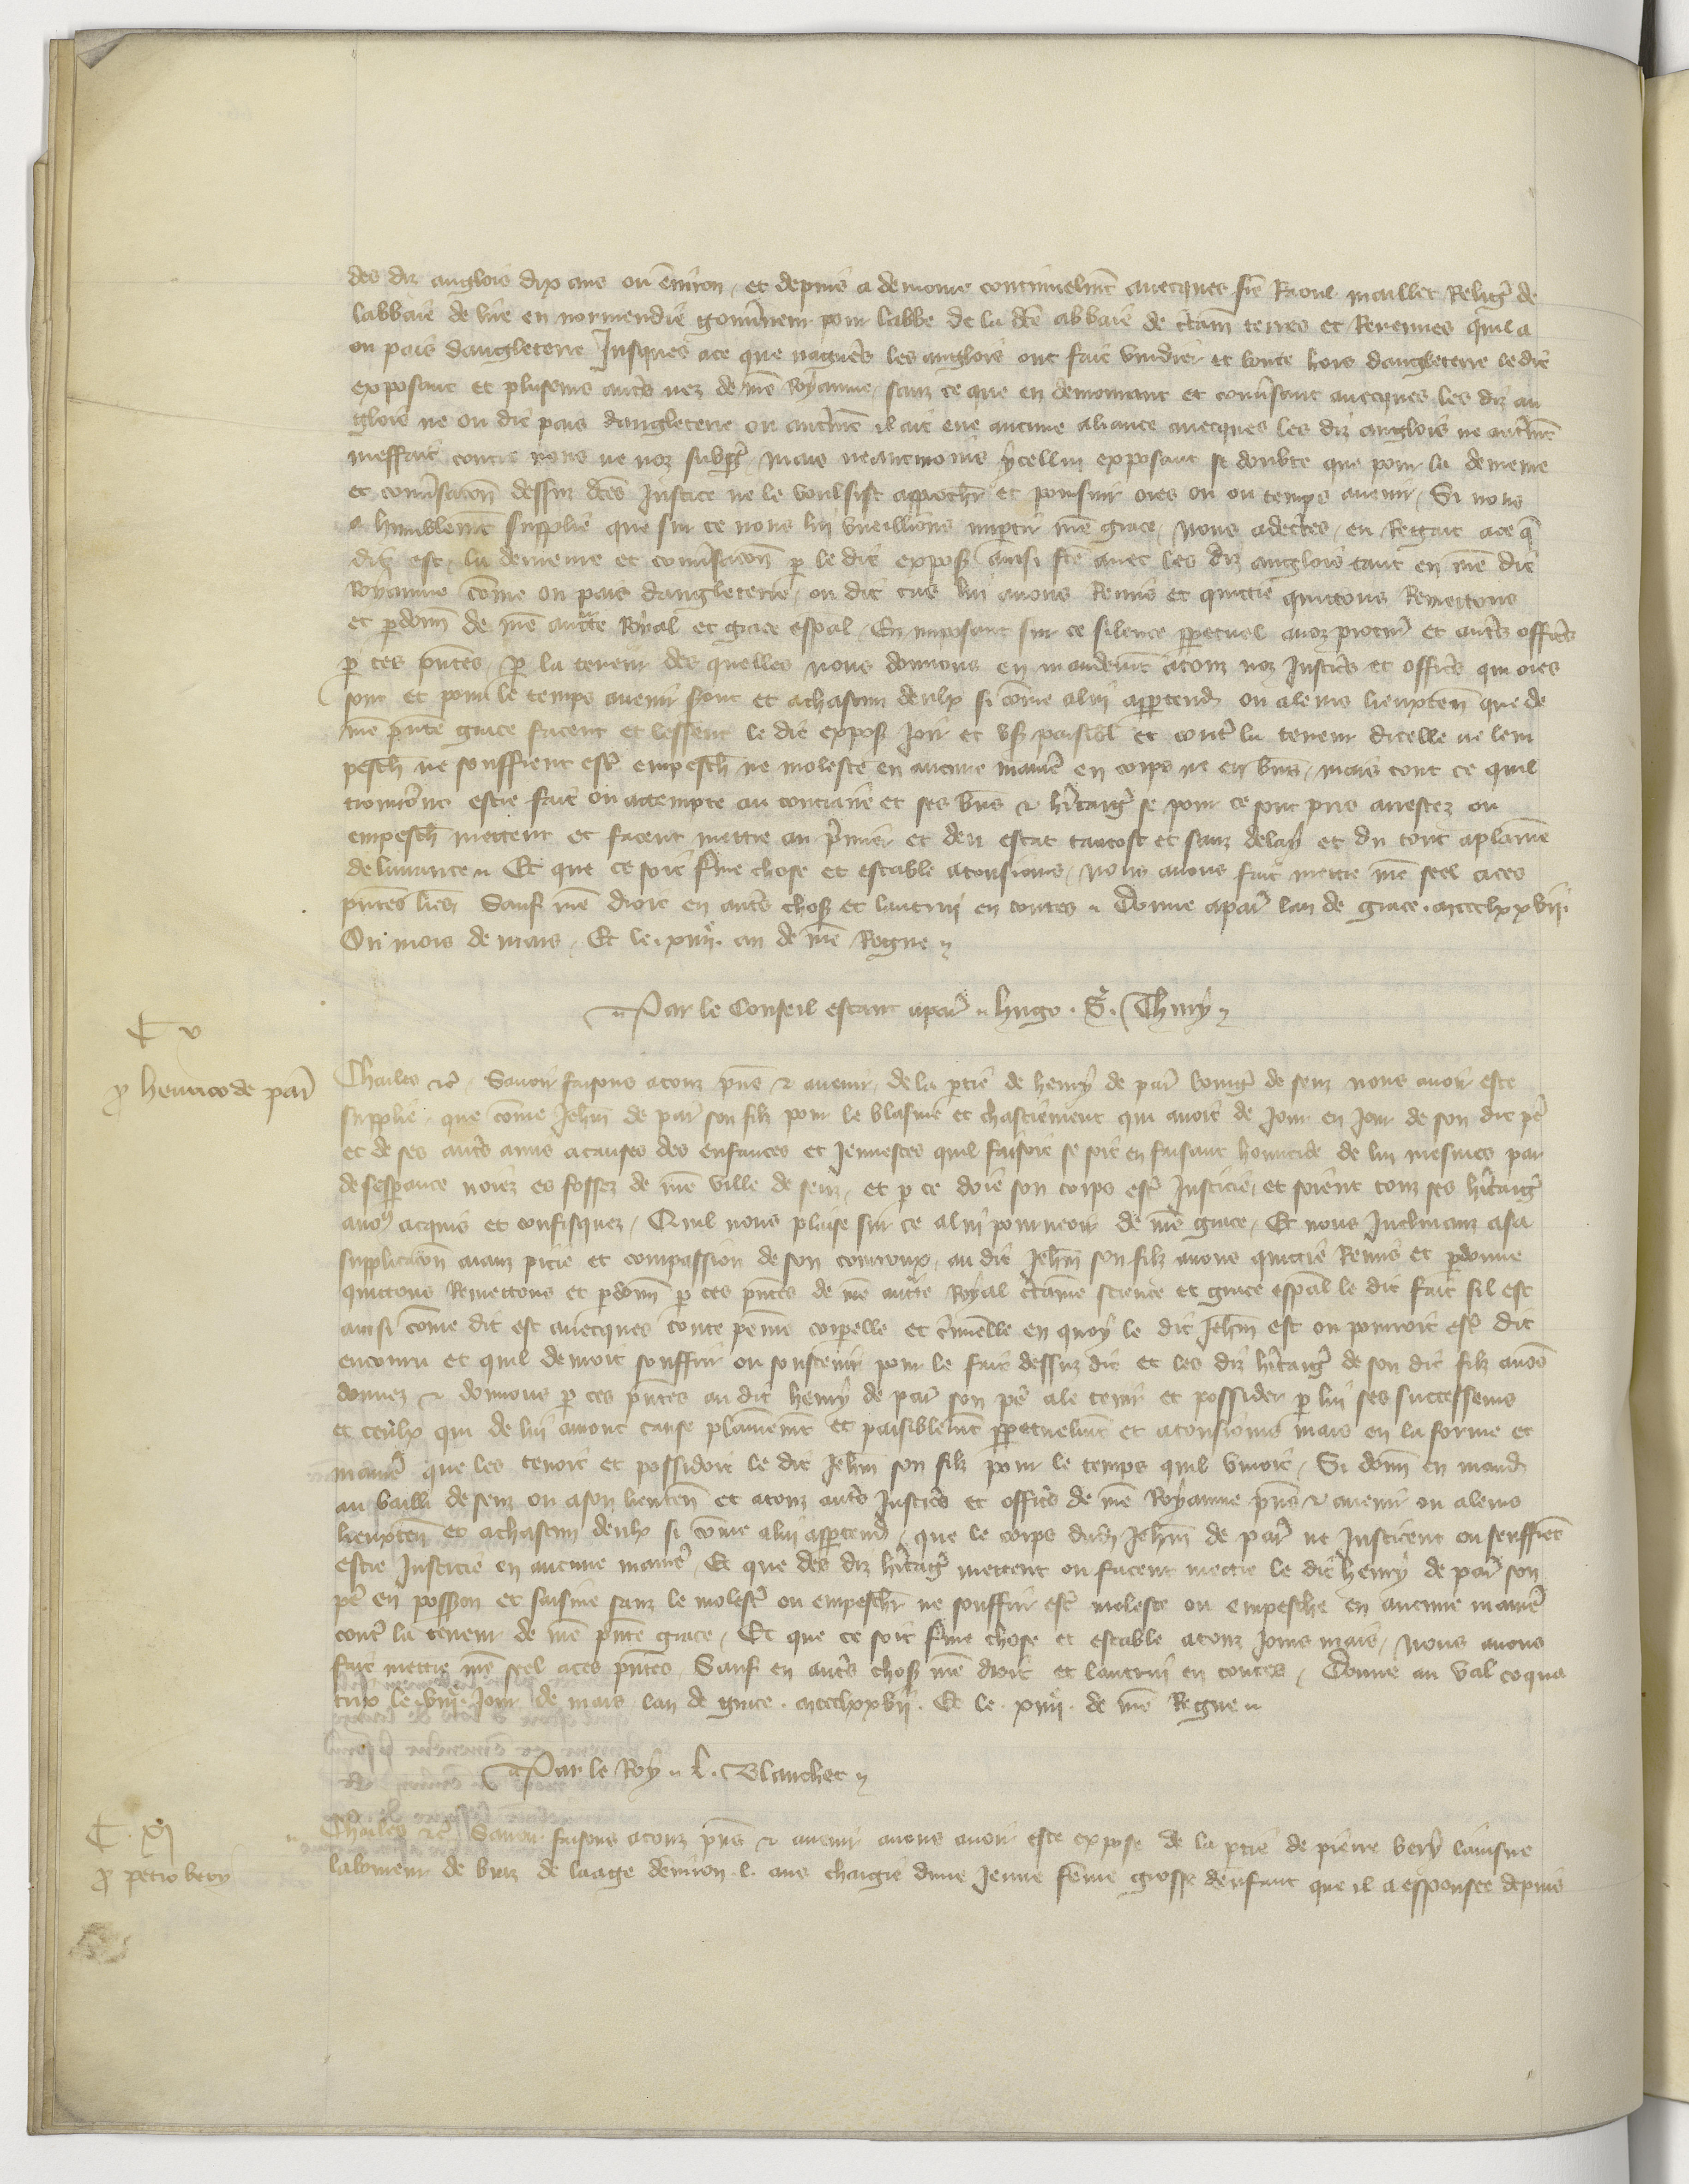 des diz anglois dix ans ou environ, et depuis a demoure continuelmēt avecques fre Raoul maillet Religs de
labbaie de lire en normendie gouvneur pour labbe de la dce abbaie de ctains terres et Revenues quil a
ou pais dangleterre Jusques ace que nagueres les anglois ont fait vuidier et boute hors dangleterre le dit
exposant et plusieurs auts nez de nre Royaume, sanz ce que en demourant et convsant avecques les diz an
glois ne ou dit pais dangleterre ou autremt il ait eue aucune aliance avecques les diz anglois ne autremt
meffait contre nous ne noz subgs, mais neantmoins ycellui exposant se doubte que pour la demeure
et conversacion dessus dces Justice ne le voulsist approchr et poursuir ores ou ou temps avenir, Si nous
a humblemt supplie que sur ce nous lui vueillions impartir nre grace, nous adectes, en Regart ace q
dit est, la demeure et convsacion p le dit exposāt ainsi fce avec les diz anglois tant en nre dit
Royaume cōme ou pais dangleterre, ou dit cas lui avons Remis et quittie quittons Remettons
et pdonns de nre auctte Royal et grace espal, En imposant sur ce silence ppetuel anoz procurs et auts offics
p ces pntes, p la teneur des quelles nous donnons en mandemt atouz noz Justics et offics qui ores
sont et pour le temps avenir seront et achascun deulx si cōme alui apptendra ou aleurs lieuxten que de
nre pnte grace facent et lessent le dit expos Joir et user paisiblt et contr la teneur dicelle ne lem
peschent ne souffrent estre empesch ne moleste en aucune manie en corps ne en biens, mais tout ce quil
trouvront estre fait ou attempte au contraire et ses biens & hitages se pour ce sont pris arrestez ou
empeschs mettent et facent mettre au pmier et deu estat tantost et sanz delay et du tout aplaine
delivrance Et que ce soit ferme chose et estable atousjours, nous avons fait mettre nre seel aces
pntes lres Sauf nre droit en auts choses et lautrui en toutes Donne apars lan de grace mccclxxvii
Ou mois de mars, Et le xiiiie an de nre Regne
Par le Conseil estant apars hugo S. Thiry
C v
p henrico de pars
Charles &c Savoir faisons atouz pns & avenir, de la ptie de henry de pars bourgs de senz nous avoir este
supplie, que cōme Jehn de pars son filz pour le blasme et chastiement qui avoit de Jour en Jour de son dit pe
et de ses auts amis acauses des enfances et Jeunesces quil faisoit se soit en faisant homicide de lui mesmes par
desesperance noiez es fossez de nre ville de senz, et p ce doie son corps estr Justicie, et soient touz ses hitages
anous acquis et confisquez, Quil nous plaise sur ce alui pourveoir de nre grace, Et nous Inclinanz asa
supplicacion aianz pitie et compassion de son courroux, au dit Jehn son filz avons quittie Remis et pdonne
quittons Remettons et pdonns p ces pntes de nre auctte Royal ctaine science et grace espal le dit fait sil est
ainsi cōme dit est avecques toute peine corporelle et criminelle en quoy le dit Jehn est ou pourroit estr dit
encouru et quil devroit souffrir ou soustenir pour le fait dessus dit et les diz hitages de son dit filz avons
donnez & donnons p ces pntes au dit henry de pars son pe ale tenir et possider p lui ses successeurs
et ceulx qui de lui auront cause plainemt et paisiblemt ppetuelmt et atousjours mais en la forme et
manie que les tenoit et possidoit le dit Jehn son filz pour le temps quil vivoit, Si donns en mandt
au bailli de senz ou ason lieuten et atouz auts Justics et offics de nre Royaume pns & avenir ou aleurs
lieuxten et achascun deulx si cōme alui apptendra, que le corps dudit Jehn de pars ne Justicent ou seuffrent
estre Justicie en aucune manie, Et que des diz hitages mettent ou facent mettre le dit henry de pars son
pe en possession et saisine sanz le molestr ou empeschr ne souffrir estr moleste ou empesche en aucune manie
contr la teneur de nre pnte grace, Et que ce soit ferme chose et estable atouz Jours mais, nous avons
fait mettre nre seel aces pntes, Sauf en auts choses nre droit et lautrui en toutes, Donne au val coqua
trix le viiie Jour de mars lan de grace mccclxxvii. Et le xiiiie de nre Regne
Par le Roy L. Blanchet
C xi
p petro bery
Charles &c Savoir faisons atouz pns & avenir anous avoir este expose de la ptie de pierre bery lainsne
laboureur de braz de laage denviron l. ans chargie dune Jeune fēme grosse denfant que il a espousee depuis